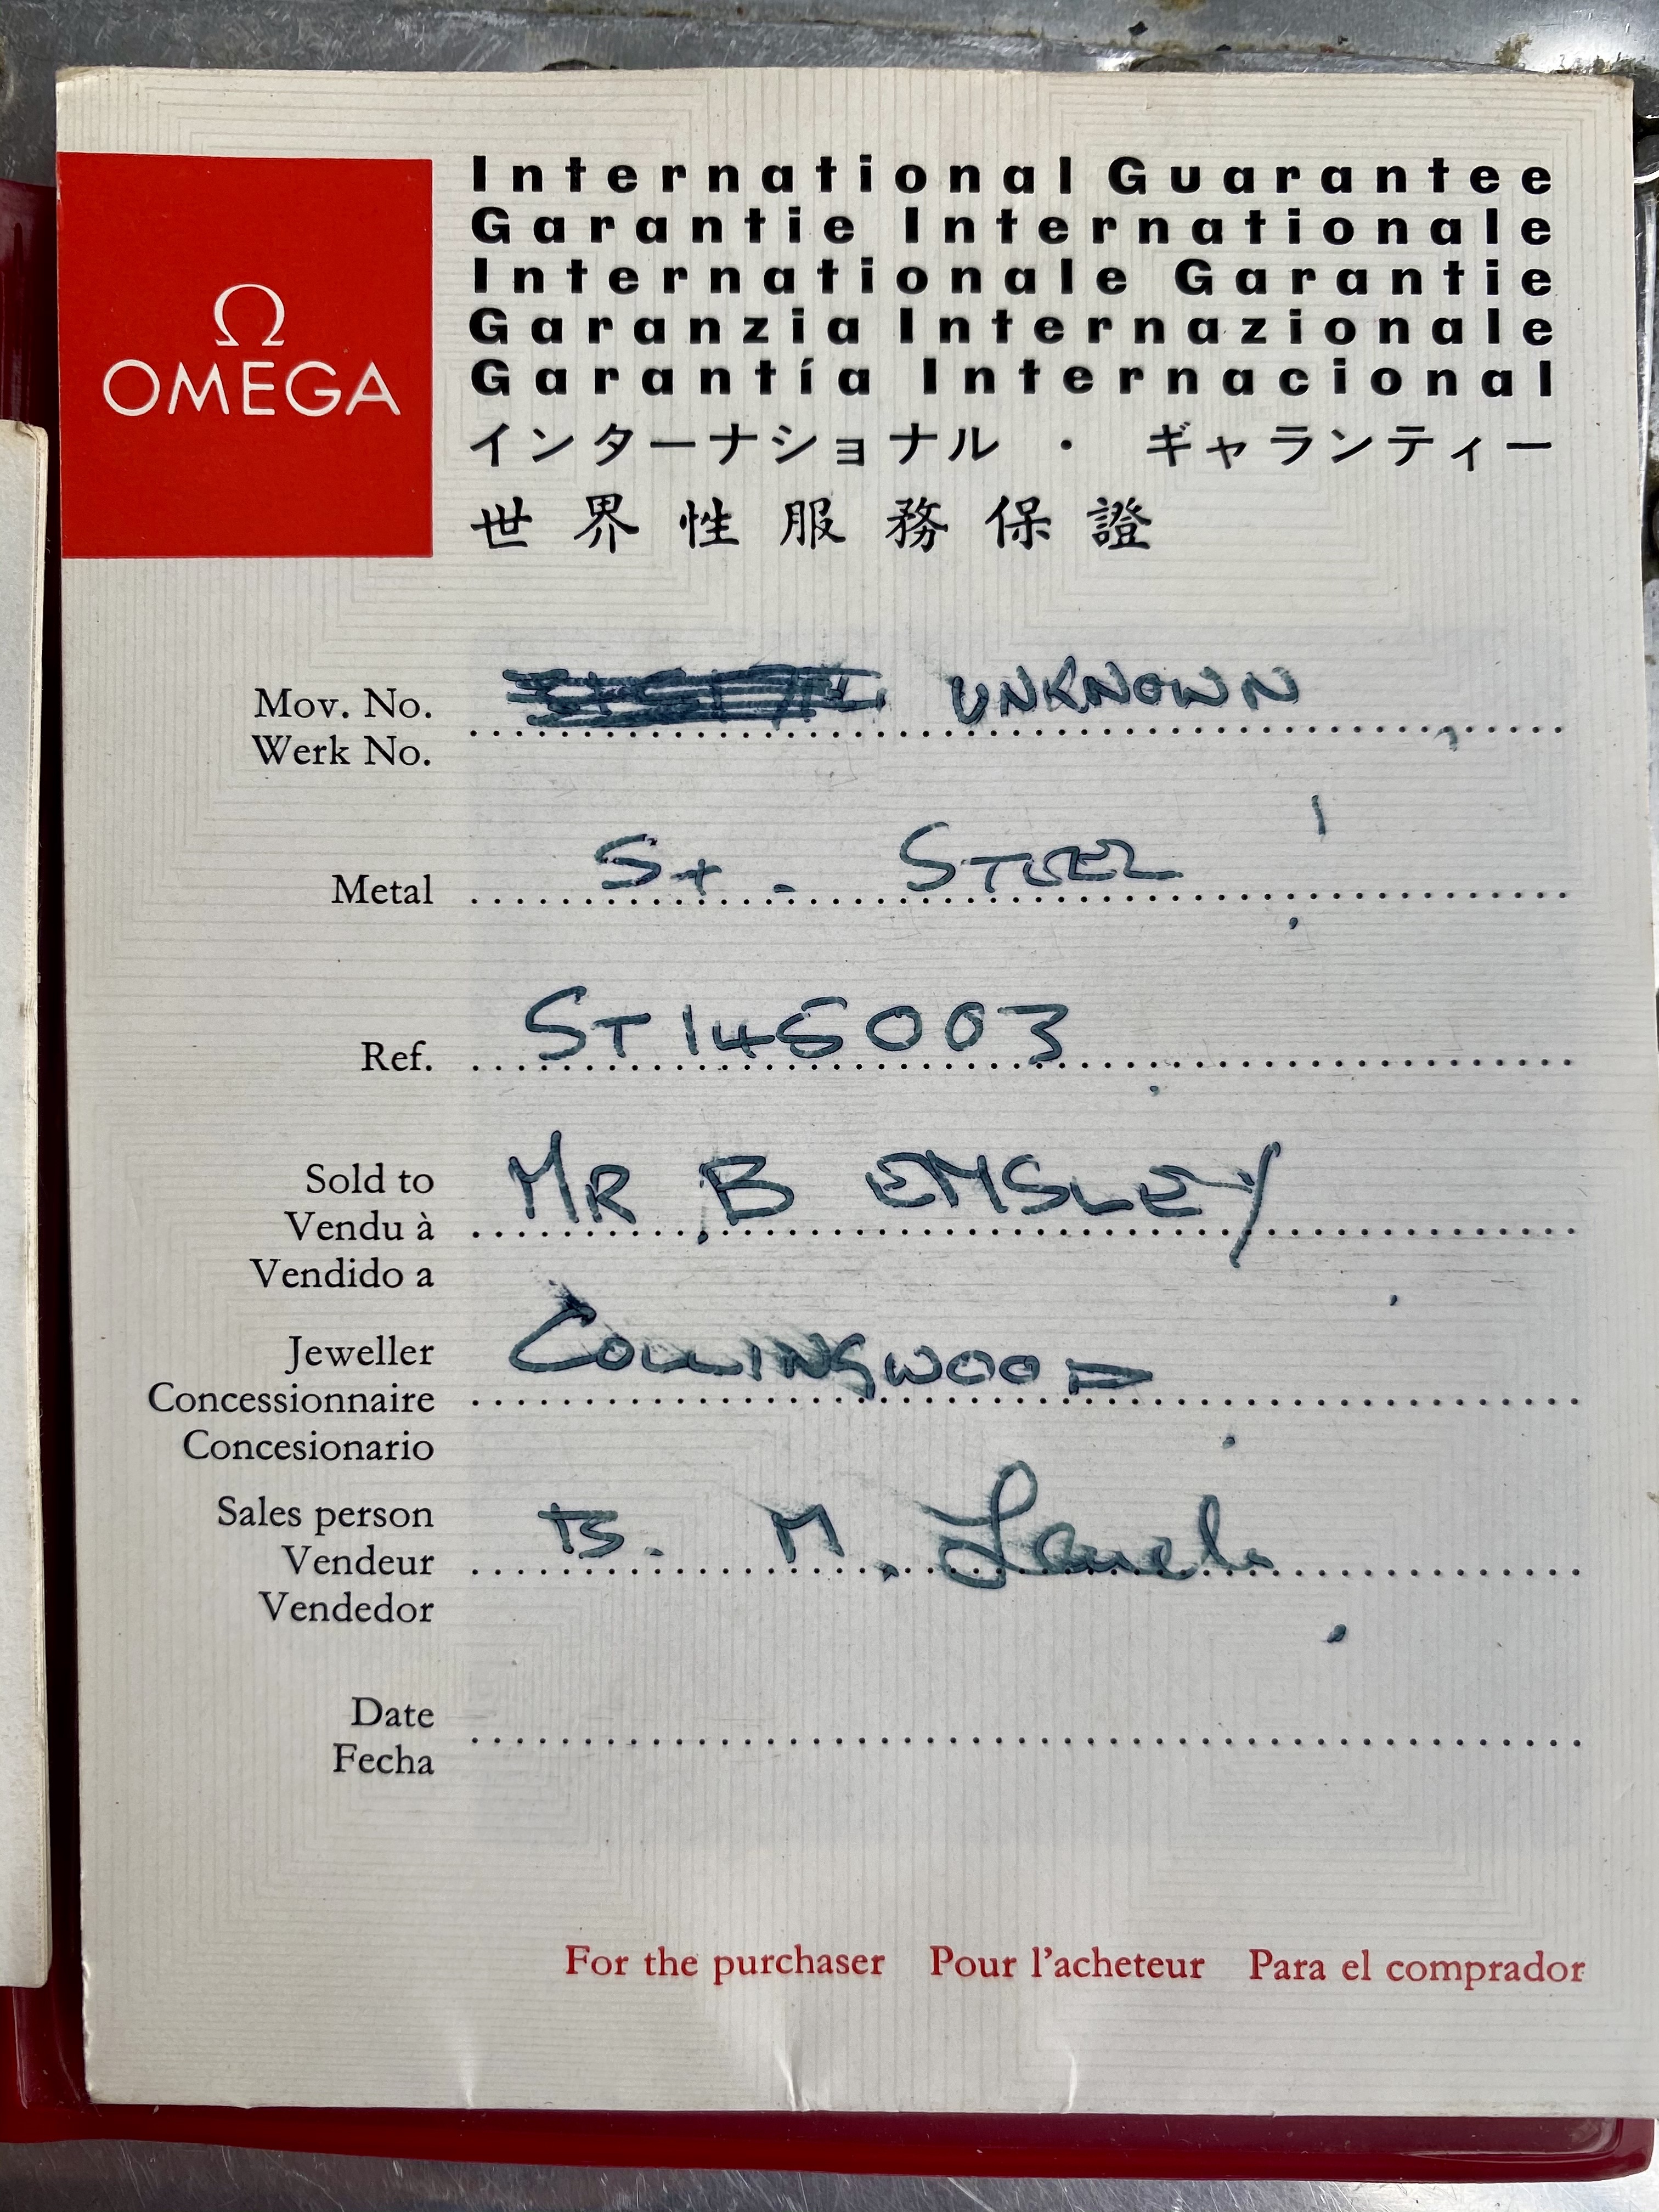 Ω
OMEGA
International Guarantee
Garantie Internationale
Internationale Garantie
Garanzia Internazionale
Garantía Internacional
インターナショナル ・ ギャランティー
世界性服務保證
Mov. No. UNKNOWN
Werk No.
Metal St. STEEL
Ref. ST145003
Sold to MR B EMSLEY
Vendu à
Vendido a
Jeweller COLLINGWOOD
Concessionnaire
Concesionario
Sales person B. M.
Vendeur
Vendedor
Date
Fecha
For the purchaser Pour l'acheteur Para el comprador